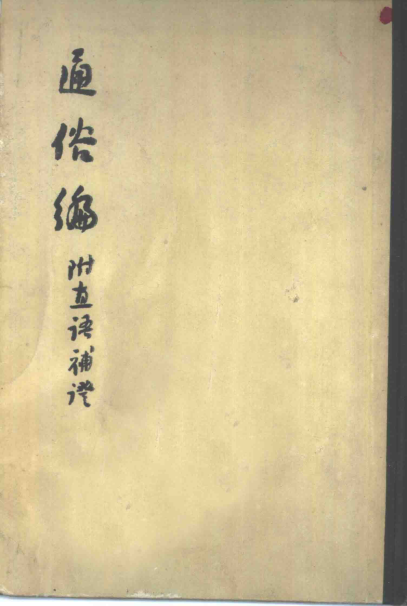 通俗编
附直语補證